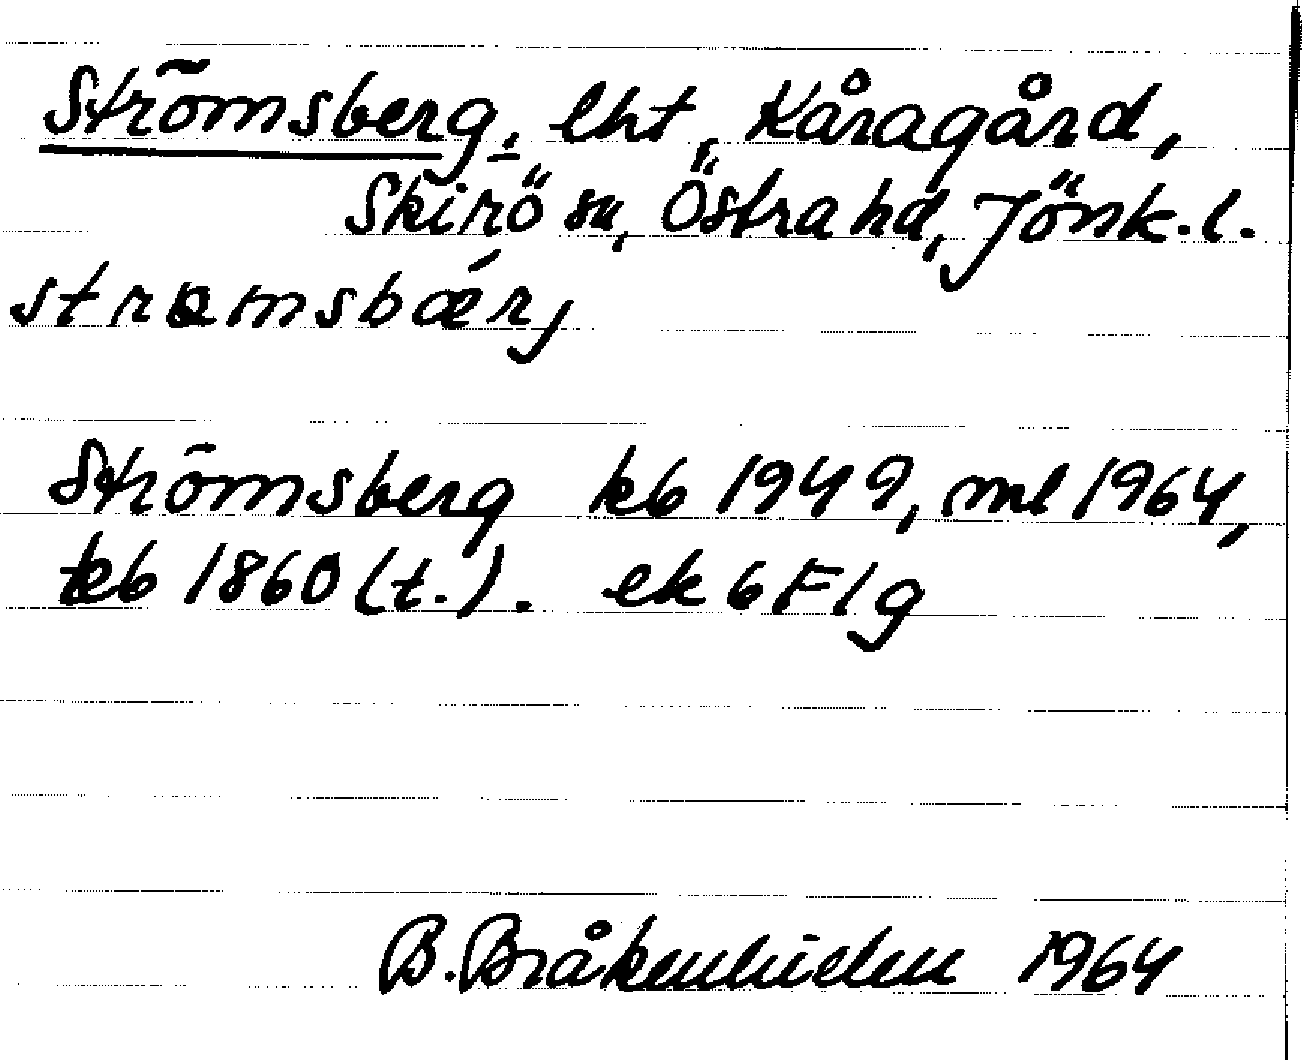 Strömsberg, lht, Kåragård,
Skirö sn, Östra hd, Jönk.l.
strɷmsbær̗j
Strömsberg kb 1949, ml 1964,
kb 1860 (t.). ek 6 F 1 g
B. Bråkenhielm 1964